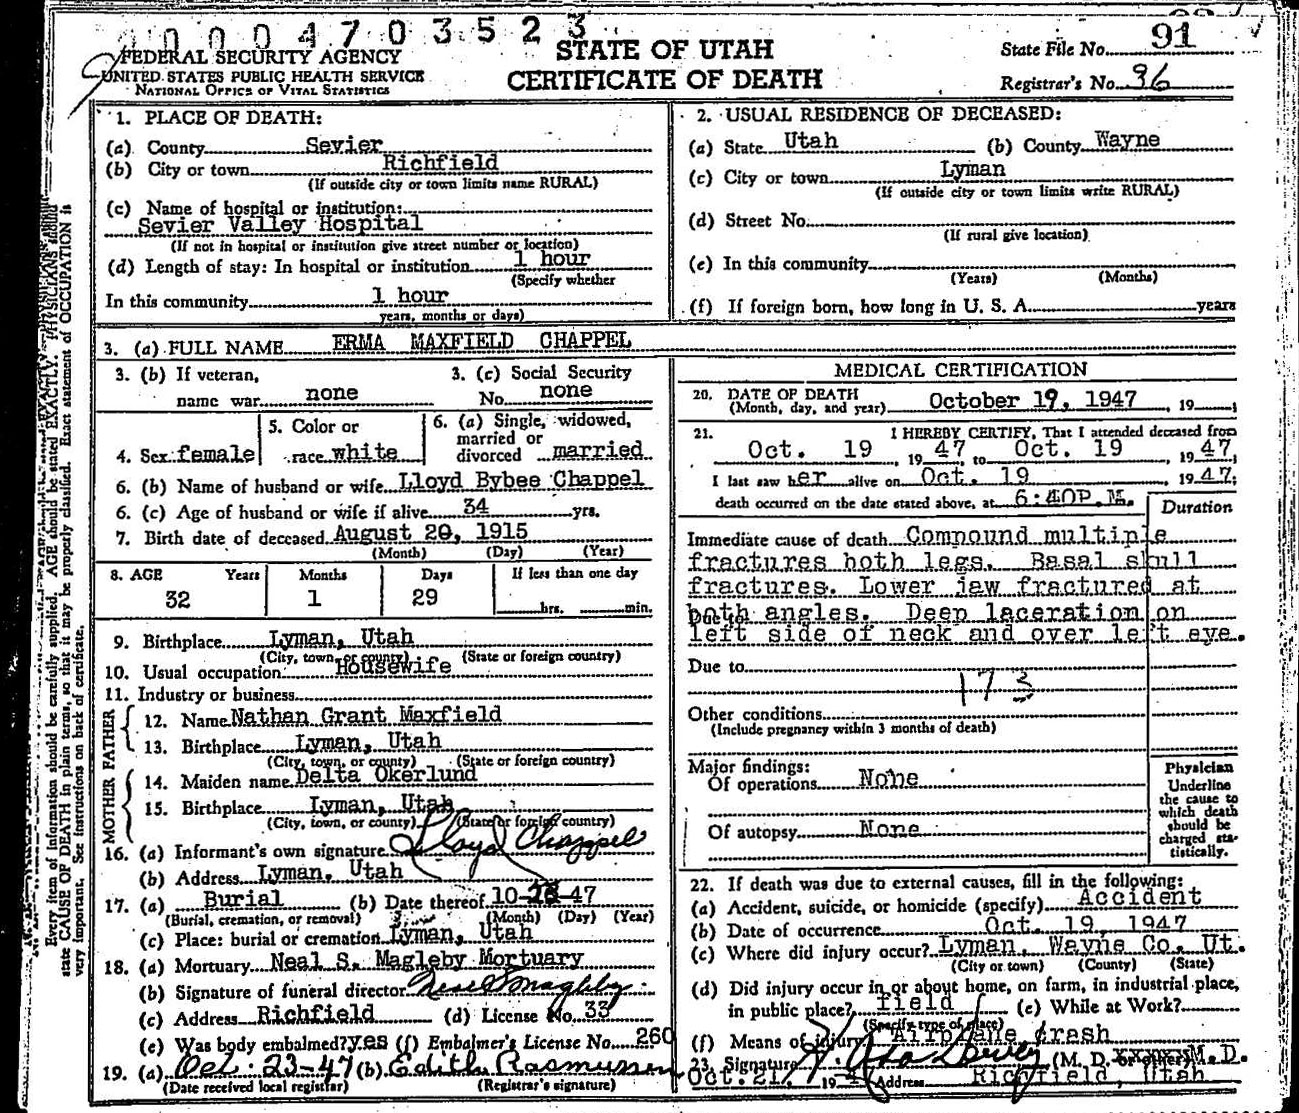 0000470352 3
FEDERAL SECURITY AGENCY
UNITED STATES PUBLIC HEALTH SERVICE
NATIONAL OFFICE OF VITAL STATISTICS
STATE OF UTAH
CERTIFICATE OF DEATH
State File No. 91
Registrar's No. 96
1. PLACE OF DEATH:
(a) County Sevier
(b) City or town Richfield
(If outside city or town limits name RURAL)
(c) Name of hospital or institution:
Sevier Valley Hospital
(If not in hospital or institution give street number or location)
(d) Length of stay: In hospital or institution 1 hour
(Specify whether
In this community 1 hour
years, months or days)
2. USUAL RESIDENCE OF DECEASED:
(a) State Utah (b) County Wayne
(c) City or town Lyman
(If outside city or town limits write RURAL)
(d) Street No.
(If rural give location)
(e) In this community
(Years) (Months)
(f) If foreign born, how long in U. S. A. years
3. (a) FULL NAME ERMA MAXFIELD CHAPPEL
3. (b) If veteran, name war none
3. (c) Social Security No. none
4. Sex female
5. Color or race white
6. (a) Single, widowed, married or divorced married
6. (b) Name of husband or wife Lloyd Bybee Chappel
6. (c) Age of husband or wife if alive 34 yrs.
7. Birth date of deceased August 20, 1915
(Month) (Day) (Year)
8. AGE Years Months Days If less than one day
32 1 29 hrs. min.
9. Birthplace Lyman, Utah
(City, town, or county) (State or foreign country)
10. Usual occupation Housewife
11. Industry or business
FATHER
12. Name Nathan Grant Maxfield
13. Birthplace Lyman, Utah
(City, town, or county) (State or foreign country)
MOTHER
14. Maiden name Delta Okerlund
15. Birthplace Lyman, Utah
(City, town, or county) (State or foreign country)
16. (a) Informant's own signature Lloyd Chappel
(b) Address Lyman, Utah
17. (a) Burial (b) Date thereof 10- -47
(Burial, cremation, or removal) (Month) (Day) (Year)
(c) Place: burial or cremation Lyman, Utah
18. (a) Mortuary Neal S. Magleby Mortuary
(b) Signature of funeral director Neal S Magleby
(c) Address Richfield (d) License No. 33
(e) Was body embalmed? yes (f) Embalmer's License No. 260
19. (a) Oct. 23-47 (b) Edith Rasmussen
(Date received local registrar) (Registrar's signature)
MEDICAL CERTIFICATION
20. DATE OF DEATH
(Month, day, and year) October 19, 1947, 19 ;
21. I HEREBY CERTIFY, That I attended deceased from
Oct. 19, 1947, to Oct. 19 1947;
I last saw her alive on Oct. 19 1947;
death occurred on the date stated above, at 6:40P.M.
Duration
Immediate cause of death Compound multiple
fractures both legs. Basal skull
fractures. Lower jaw fractured at
Due to both angles. Deep laceration on
left side of neck and over left eye.
Due to
173
Other conditions
(Include pregnancy within 3 months of death)
Major findings:
Of operations None
Of autopsy None
Physician
Underline
the cause to
which death
should be
charged sta-
tistically.
22. If death was due to external causes, fill in the following:
(a) Accident, suicide, or homicide (specify) Accident
(b) Date of occurrence Oct. 19, 1947
(c) Where did injury occur? Lyman, Wayne Co. Ut.
(City or town) (County) (State)
(d) Did injury occur in or about home, on farm, in industrial place,
in public place? field (e) While at Work?
(Specify type of place)
(f) Means of injury Airplane crash
23. Signature Dewey (M. D. or other) M.D.
Oct. 21, 194 Address Richfield, Utah
Every item of information should be carefully supplied. AGE should be stated EXACTLY. PHYSICIANS should
state CAUSE OF DEATH in plain terms, so that it may be properly classified. Exact statement of OCCUPATION is
very important. See instructions on back of certificate.